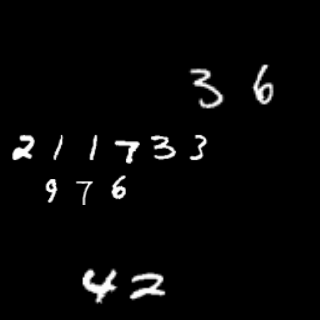 3 6
2 1 1 7 3 3
9 7 6
4 2